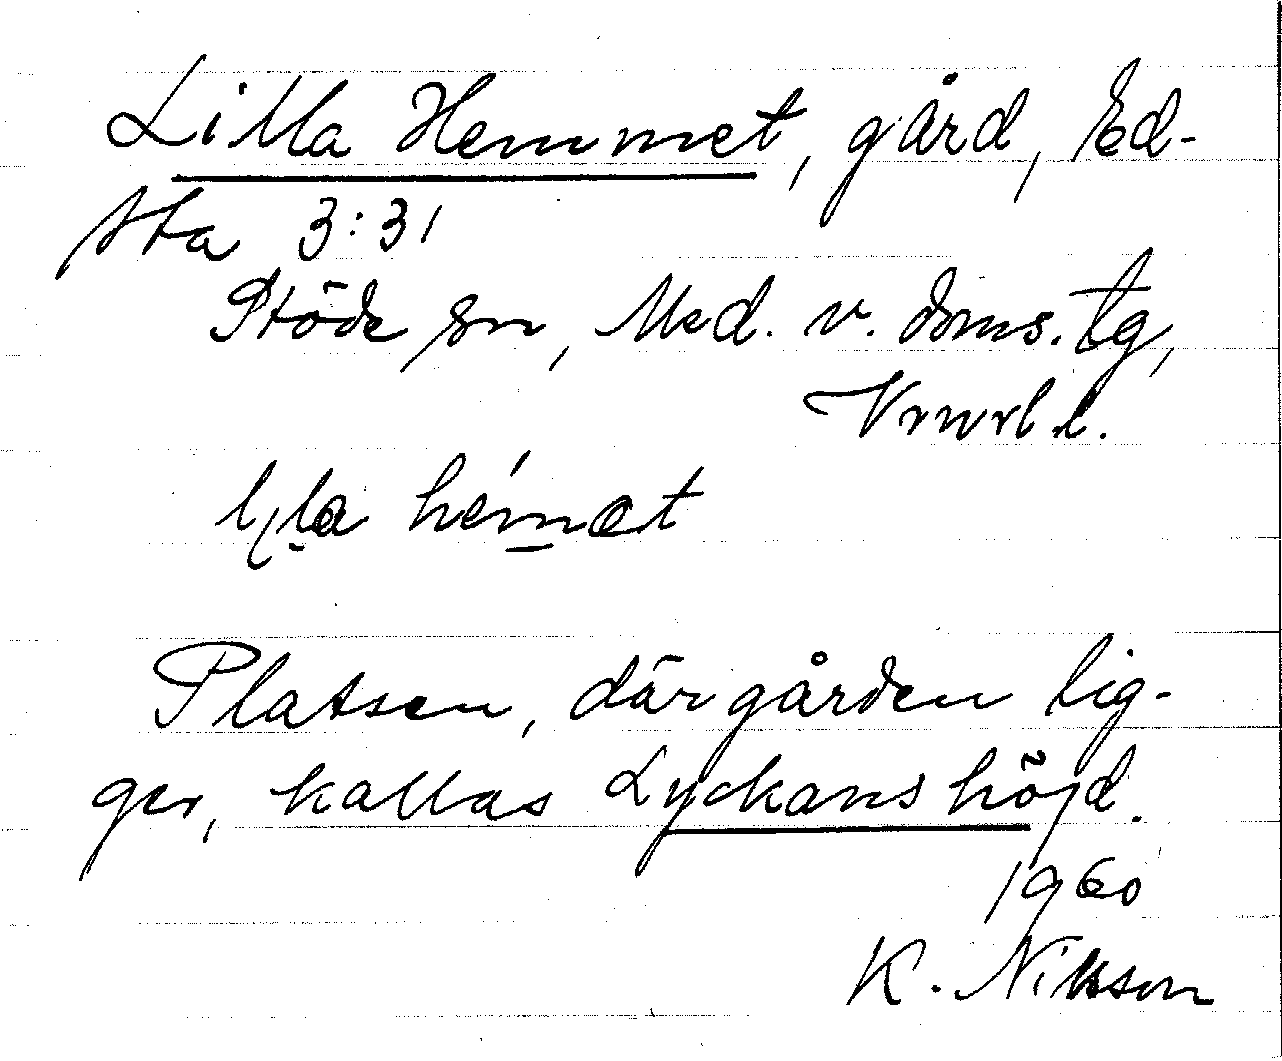 Lilla Hemmet, gård, Ed-
sta 3:31
Stöde sn, Med. v. doms. tg,
Vrnrl l.
hémət
Platsen, där gården lig-
ger, kallas Lyckans höjd.
1960
K. Nilsson